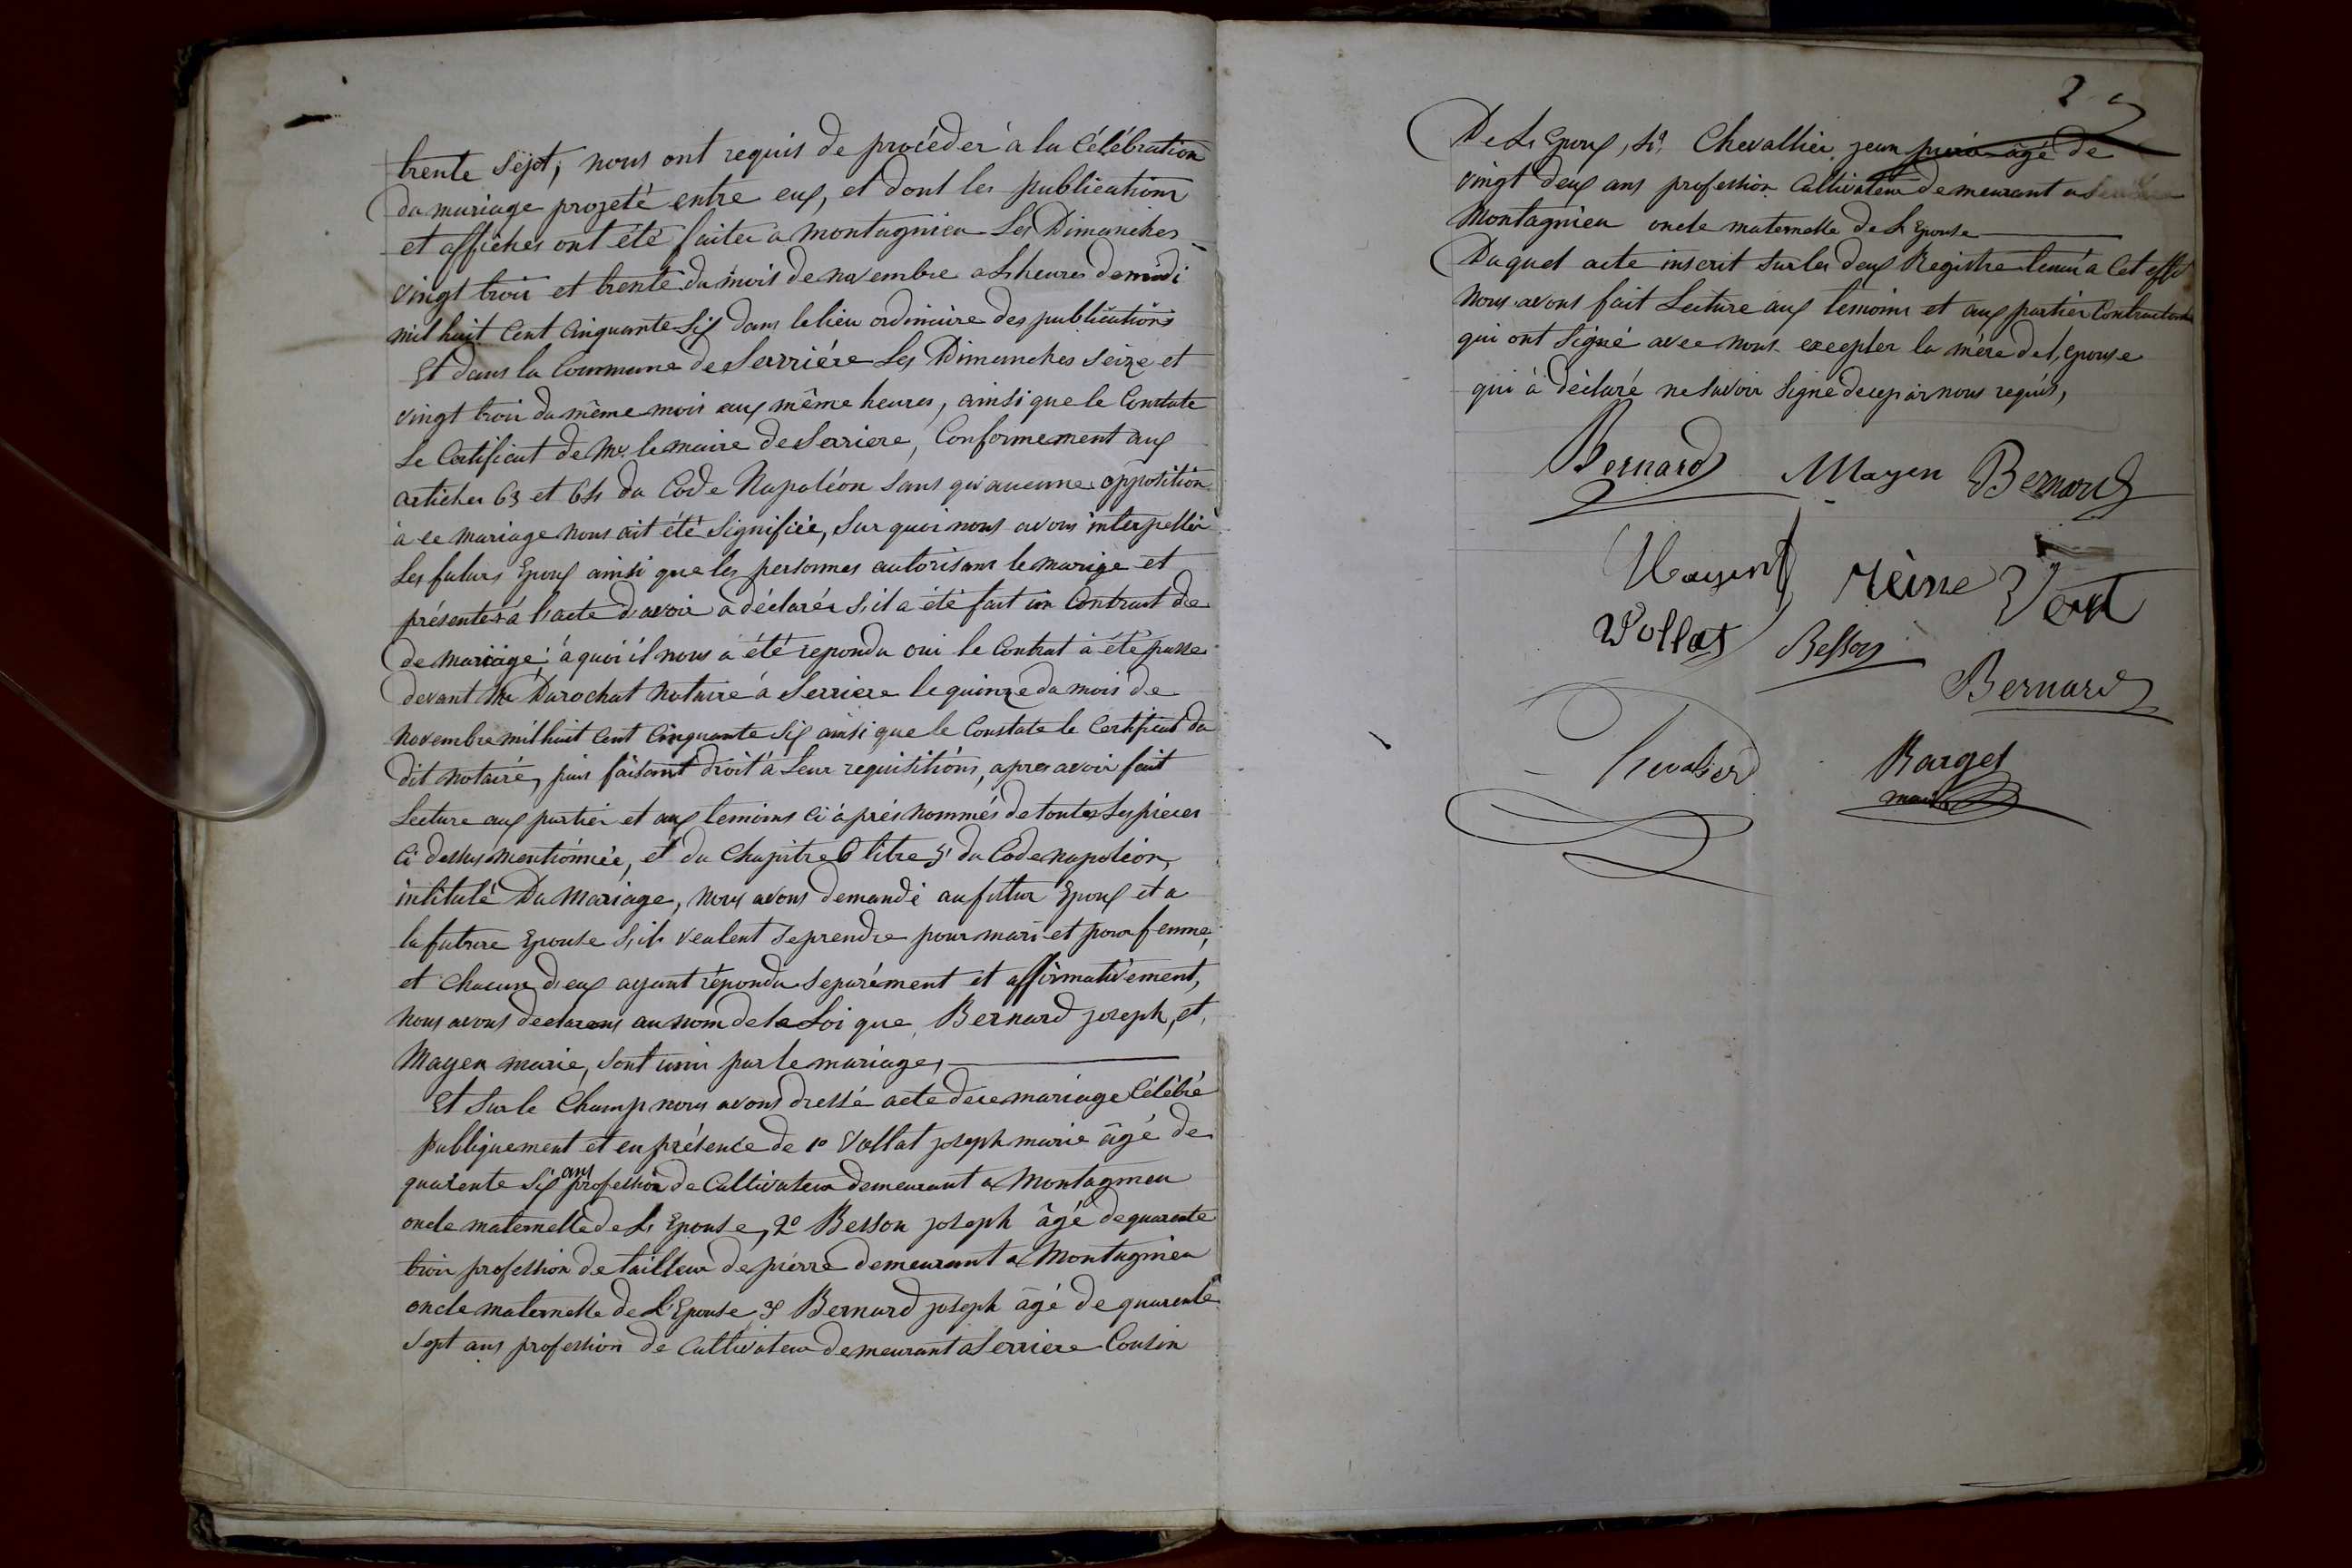 trente Sept, nous ont requis de procéder à la Célébration
du mariage projeté entre eux, et dont les publications
et affiches ont été faites a montagnieu Les Dimanches
vingt trois et trente du mois de novembre a L'heures de midi
mil huit Cent Cinquante Six dans le lieu ordinaire des publications
Et dans la Commune de Serriére Les Dimanches seize et
vingt trois du même mois aux même heures, ainsi que le Constate
Le Certificat de Mr. le maire de Serriere, Conformement aux
articles 63 et 64 du Code Napoléon Sans qu'aucune opposition
à ce mariage nous ait été Signifiée, Sur quoi nous avons interpellé
Les futurs Epoux ainsi que les personnes autorisant le marige et
présentes à l'acte d'avoir à déclarér S'il a été fait un Contrat de
de mariage; à quoi il nous a été repondu oui le Contrat à été passé
devant Me Darochat Notaire à Serriere le quinze du mois de
Novembre mil huit Cent Cinquante Six ainsi que le Constate le Certificat du
dit notaire, puis faisant droit à Leur requisitions, apres avoir fait
Lecture aux parties et aux temoins Ci àprés nommés de toutes Les pièces
Ci dessus mentionnée, et du Chapitre 6 titre 5 du Code napoléon,
intitulé Du Mariage, Nous avons demandé au futur Epoux et a
la future Epouse S'ils veulent Se prendre pour mari et pour femme,
et Chacun d'eux ayant répondu Separément et affirmativement,
Nous avons declarons au nom de la Loi que Bernard joseph, et,
Mayen marie, Sont unis par le mariage,
Et Sur le Champ nous avons dressé acte de ce mariage Célébré
publiquement et en présence de 1o Vollat joseph marie âgé de
quarente Six ans profession de Cultivateur demeurant a Montagnieu
oncle maternelle de L'Epouse, 2o Besson joseph âgé de quarente
trois profession de tailleur de pierre demeurant a Montagnieu
oncle maternelle de L'Epouse 3o Bernard joseph âgé de quarente
Sept ans profession de Cultivateur demeurant a Serriere Cousin
2
De L'Epoux, 4o Chevallier jean âgé de
vingt deux ans profession Cultivateur demeurant a
Montagnieu oncle maternelle de L'Epouse
Duquel acte inscrit Sur les deux Registre tenus a Cet effet
Nous avons fait Lecture aux temoins et aux parties Contractantes
qui ont Signé avec nous excepter la mère de l'epouse
qui à déclaré ne Savoir Signé de ce par nous requis,
Bernard Mayen Bernard
Mayent reine Vert
Vollat Besson
Bernard
Chevalier Barget
maire